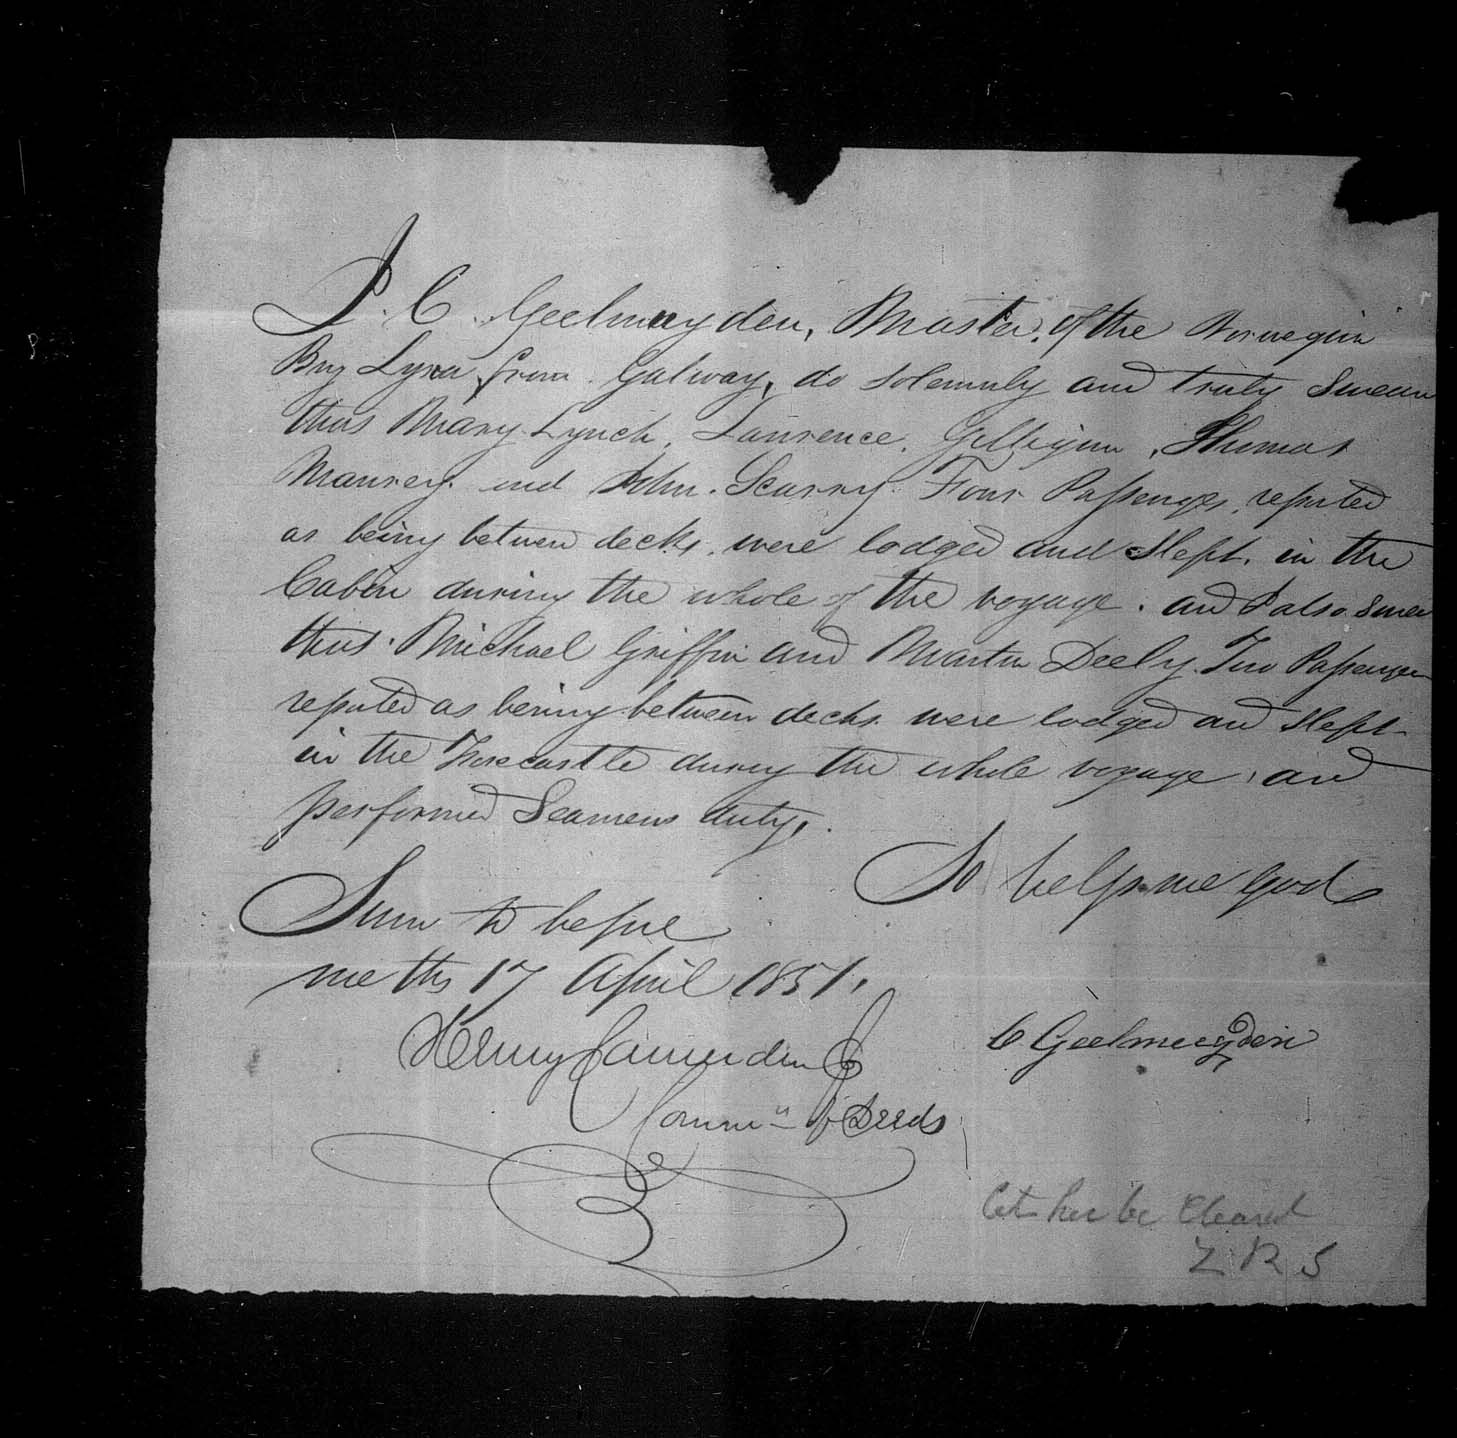 I. C. Geelmuyden, Master. of the Norwegian
Brig Lyra from Galway, do solemnly and truly Swear
that Mary Lynch, Laurence, Gilligan, Thomas
Manrey and John Scarry Four Passenges, reported
as being between decks, were lodged and Slept. in the
Cabin during the whole of the voyage. and I also Swear
that Michael Griffin and Martin Deely Two Passenger
reported as being between decks were lodged and Slept
in the Forecastle during the whole voyage, and
performed Seamens duty,.
So help me God
Sworn to before
me this 17 April 1851,
Henry Camerden Jr
C Geelmuyden
Commr of Deeds
Let her be Cleared
Z R S